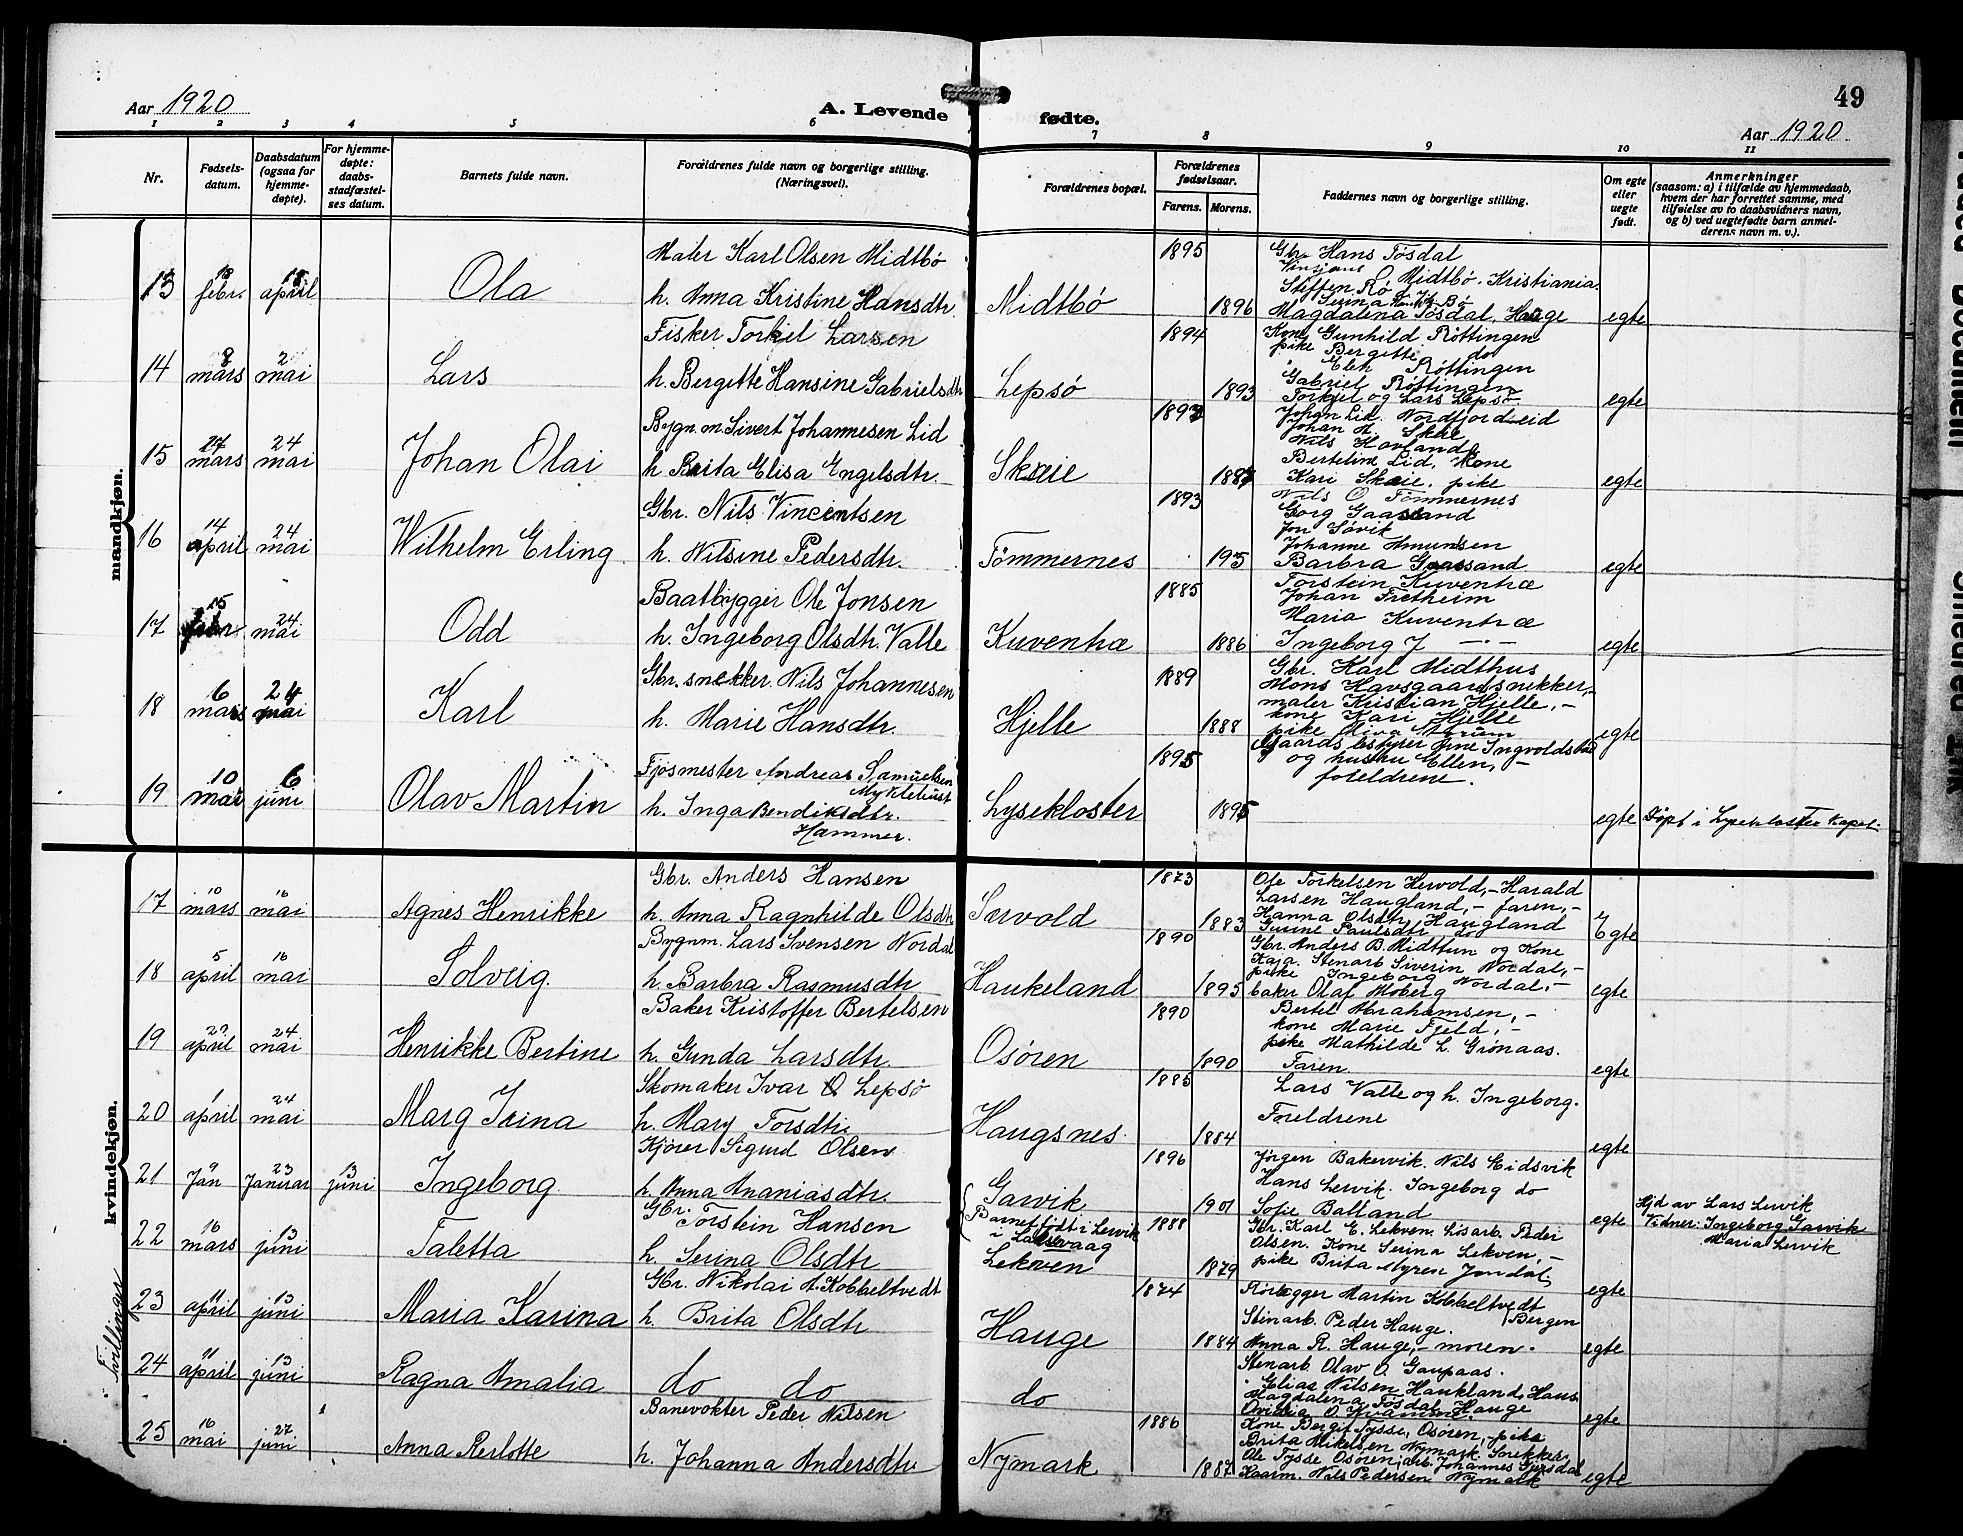 49
Aar 1920
A. Levende fødte.
Aar 1920
1 2 3 4 5 6 7 8 9 10 11
Nr.
Fødsels-
datum.
Daabsdatum
(ogsaa for
hjemme-
døpte).
For hjemme-
døpte:
daabs-
stadfæstel-
ses datum.
Barnets fulde navn.
Forældrenes fulde navn og borgerlige stilling.
(Næringsvei).
Forældrenes bopæl.
Forældrenes
fødselsaar.
Farens. Morens.
Faddernes navn og borgerlige stilling.
Om egte
eller
uegte
født.
Anmerkninger
(saasom: a) i tilfælde av hjemmedaab,
hvem der har forrettet samme, med
tilføielse av to daabsvidners navn,
og b) ved uegtefødte barn anmel-
derens navn m. v.).
mandkjøn.
Maler Karl Olsen Midtbö 1895 Gbr. Hans Tøsdal
13 febr. april Ola h. Anna Kristine Hansdtr. Midtbö 1896 egte
Midtbö. Kristiania
Magdalena Tøsdal, Hauge
Fisker Torkiel Larsen 1894 Kone Gunhild Røttingen
pike Bergitte do
14 8 mars 2 mai Lars h. Bergitte Hansine Gabrielsdtr Lepsö 1893 egte
Røttingen
Gabriel Røttingen
Torkiel og Lars Lepsö
Bygn.m Sivert Johannesen Lid Johan Lid. Nordfjordeid
15 27 mars 24 mai Johan Olai h. Brita Elisa Engelsdtr. Skeie egte
Nils Hovland
Berteline Lid, Kone
Kari Skeie, pike
Gbr. Nils Vincentsen 1893 Nils O. Tömmernes
16 14 april 24 mai Wilhelm Erling h. Nilsine Pedersdtr. Tömmernes 195 egte
Jon Søvik
Johanne Amundsen
Barbra Gaassand
Baatbygger Ole Jonsen 1885 Torstein Kuventræ
Johan Fretheim
17 15 24 mai Odd h. Ingeborg Olsdtr. Valle Kuventræ 1886 egte
Maria Kuventræ
Ingeborg J — " —
Gbr. snekker Nils Johannesen 1889 Gbr. Karl Midthus
18 6 mars 24 mai Karl h. Marie Hansdtr. Hjelle 1888 egte
Mons Havsgaard snikker, -
maler Kristian Hjelle, -
kone Kari Hjelle
Fjøsmester Andreas Samuelsen
Myklebust 1895
19 10 mar 6 juni Olav Martin h. Inga Bendiksdtr.
Hammer. Lysekloster 1895 egte Döpt i Lysekloster Kapel.
og hustru Ellen, -
foreldrene.
kvindekjøn.
Gbr. Anders Hansen 1873 Ole Torkelsen Hervold, - Harald
17 10 mars 16 mai Agnes Henrikke h. Anna Ragnhilde Olsdtr. 1883 Egte
Larsen Haugland, - faren, -
Hanna Olsdtr. Haugland
Bygnm. Lars Svensen Nordal 1890 Gbr. Anders B. Midttun og Kone
18 5 april 16 mai Solveig. h. Barbra Rasmusdtr Haukeland 1895 egte
Kaja. Stenarb Siverin Nordal, -
pike Ingeborg Nordal, -
baker Olaf Moberg
Baker Kristoffer Bertelsen 1890 Bertel Abrahamsen, -
19 april 24 mai Henrikke Bertine h. Gunda Larsdtr. Osören 1890 egte
kone Marie Fjeld, -
pike Mathilde L. Grönaas.
Faren
Skomaker Ivar O Lepsö 1885 Lars Valle og h. Ingeborg.
20 1 april 24 mai Marg Irina h. Mary Torsdtr Haugsnes. 1884 egte
Foreldrene
Kjörer Sigurd Olsen 1896 Jörgen Bakervik. Nils Eidsvik
21 9 Jan 23 Januar 13 juni Ingeborg h. Anna Ananiasdtr. Gasvik 1901 egte
Hans Lervik. Ingeborg do
Sofie Balland
Barnet født i Lervik
i Laksevaag
Hjd av Lars Lervik
Vidner: Ingeborg Gasvik
Maria Lervik
Gbr. Torstein Hansen 1888 Gbr. Karl E. Lekven. Løsarb. Peder
22 16 mars 13 juni Taletta h. Serina Olsdtr Lekven 1879 egte
Olsen. Kone Serina Lekven, -
pike Brita Styren Jondal
Tvillinger
Gbr. Nikolai A. Kobbeltvedt 1874 Martin Kobbeltvedt
Bergen
23 11 april 13 juni Maria Karina h Brita Olsdtr Hauge 1884 egte
Stinarb. Peder Hauge.
Anna R. Hauge, - moren.
24 11 april 13 juni Ragna Amalia do do do egte
Stenarb. Olav O. Gaupaas.
Elias Nilsen Haukland, Haus
Magdalena Tøsdal, Hauge
Banevokter Peder Nilsen 1886 Kone Bergit Tysse, Osören, - pike
25 16 mai 27 juni Anna h. Johanna Andersdtr Nymark 1887 egte
Brita Mikelsen Nymark. Snekker
Ole Tysse Osören, arb. Johannes
Kaarm. Nils Pedersen Nymark